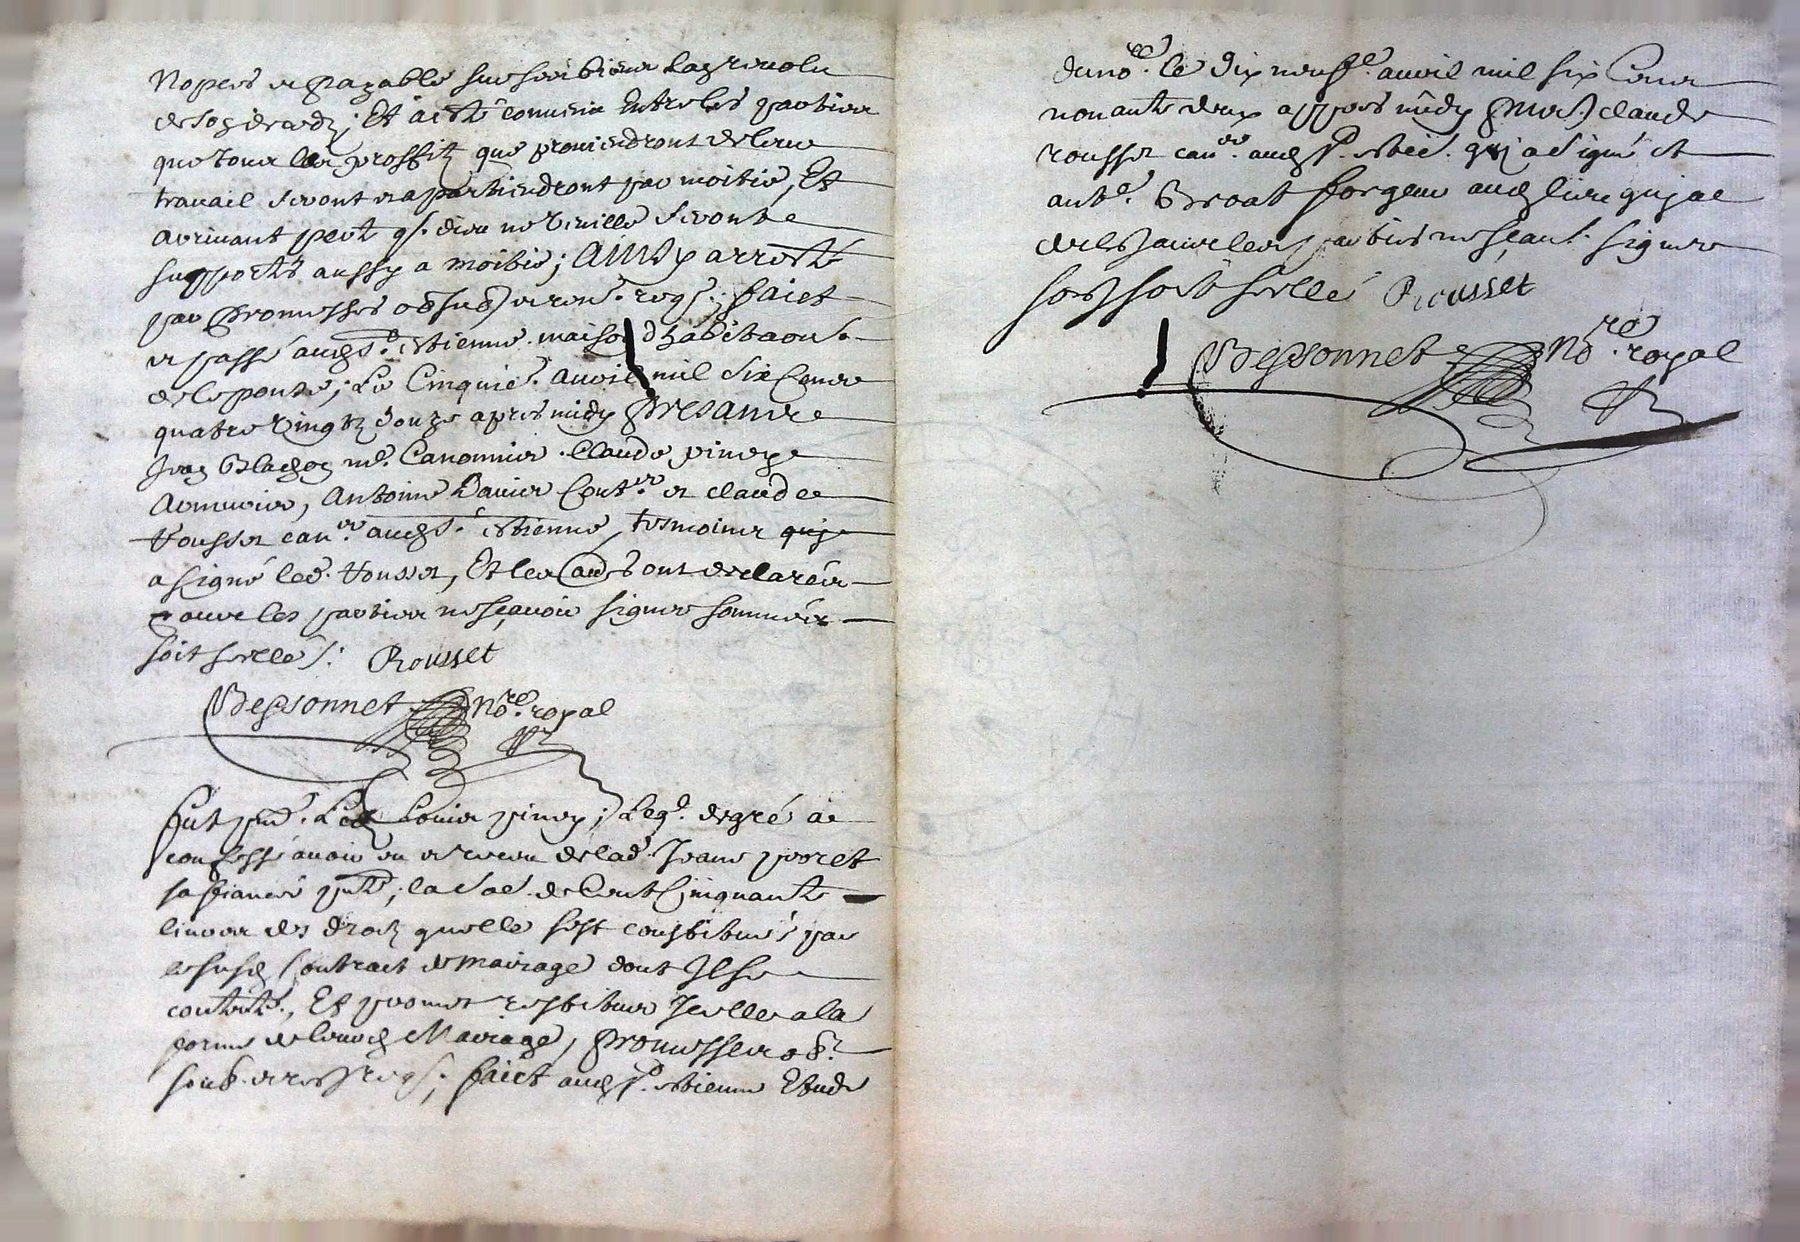 Nopces et payable sur ses biens la 
de son deceds; Et a esté convenu Entre les parties
que tous les proffitz que proviendront de leur
travail seront et apartiendront par moitié, Et
arrivant perte q. dieu ne veuille seronte
supportés aussy a moitié; Ainsy arresté
par promesses obs. sub. et ren. req.; faict
et passé aud. S. Estienne maison d'habitaon
de lepouse; Le Cinquie. avril mil six Cents
quatre vingtz douze apres midy presants
Jean Blachon me. Canonnier Claude pineye
Armurier, Antoine Cout.er et claude
Rousset can.er aud. S. Estienne, tesmoins quy
a signé led. Rousset, Et les aud. ont declaré
avec les parties ne sçavoir signer sommés
soit scellé /. Rousset
Bessonnet No.re royal
fut pnt. Led. Louis piney; Leq. de gré a
confessé avoir eu et receu de lad. Jeane poret
sa fiancée pnte; la so.e de Cent Cinquante
livres des droitz quelle sest constitués par
le susd. Contract de mariage dont Il se
contente, Et promet restituer Icelle a la
forme de leurd. Mariage, promesses ob.
soub. et ren. req.; faict aud. S. Estienne Etude
du no.re le dix neufe. avril mil six Cents
nonante deux appres midy pnts claude
rousset can.er aud. S. estie. quj a signé et
ant.e forgeur aud. lieu quj a
declaré avec les parties ne sçavt. signer
soit scellé Rousset
Bessonnet No.re royal